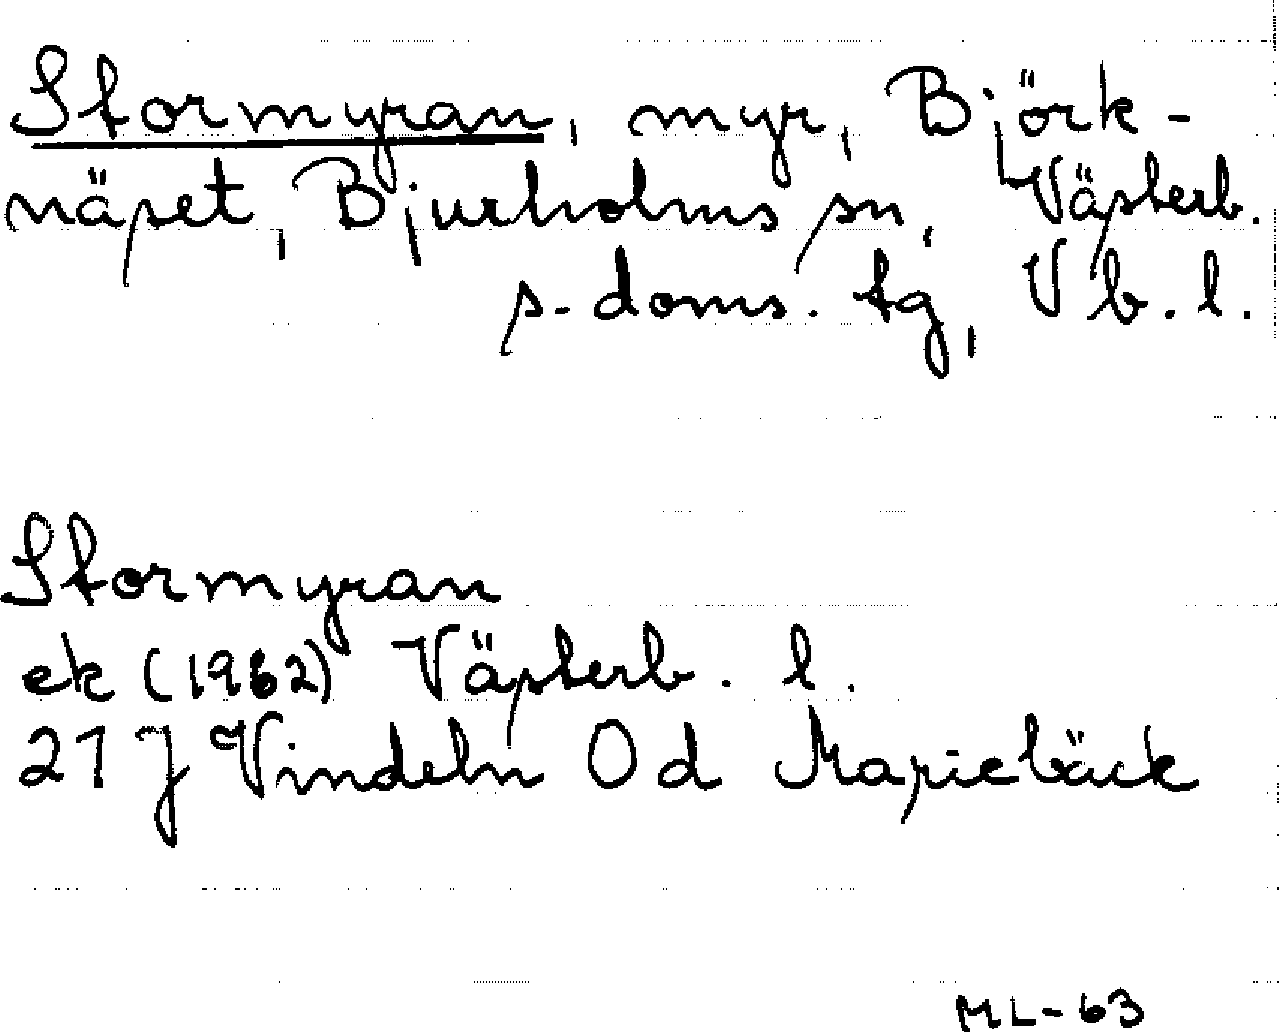 Stormyran, myr, Björk-
näset, Bjurholms sn, Västerb.
s. doms. tg, Vb. l.
Stormyran
ek (1962) Västerb. l.
21 J Vindeln Od Mariebäck
ML-63